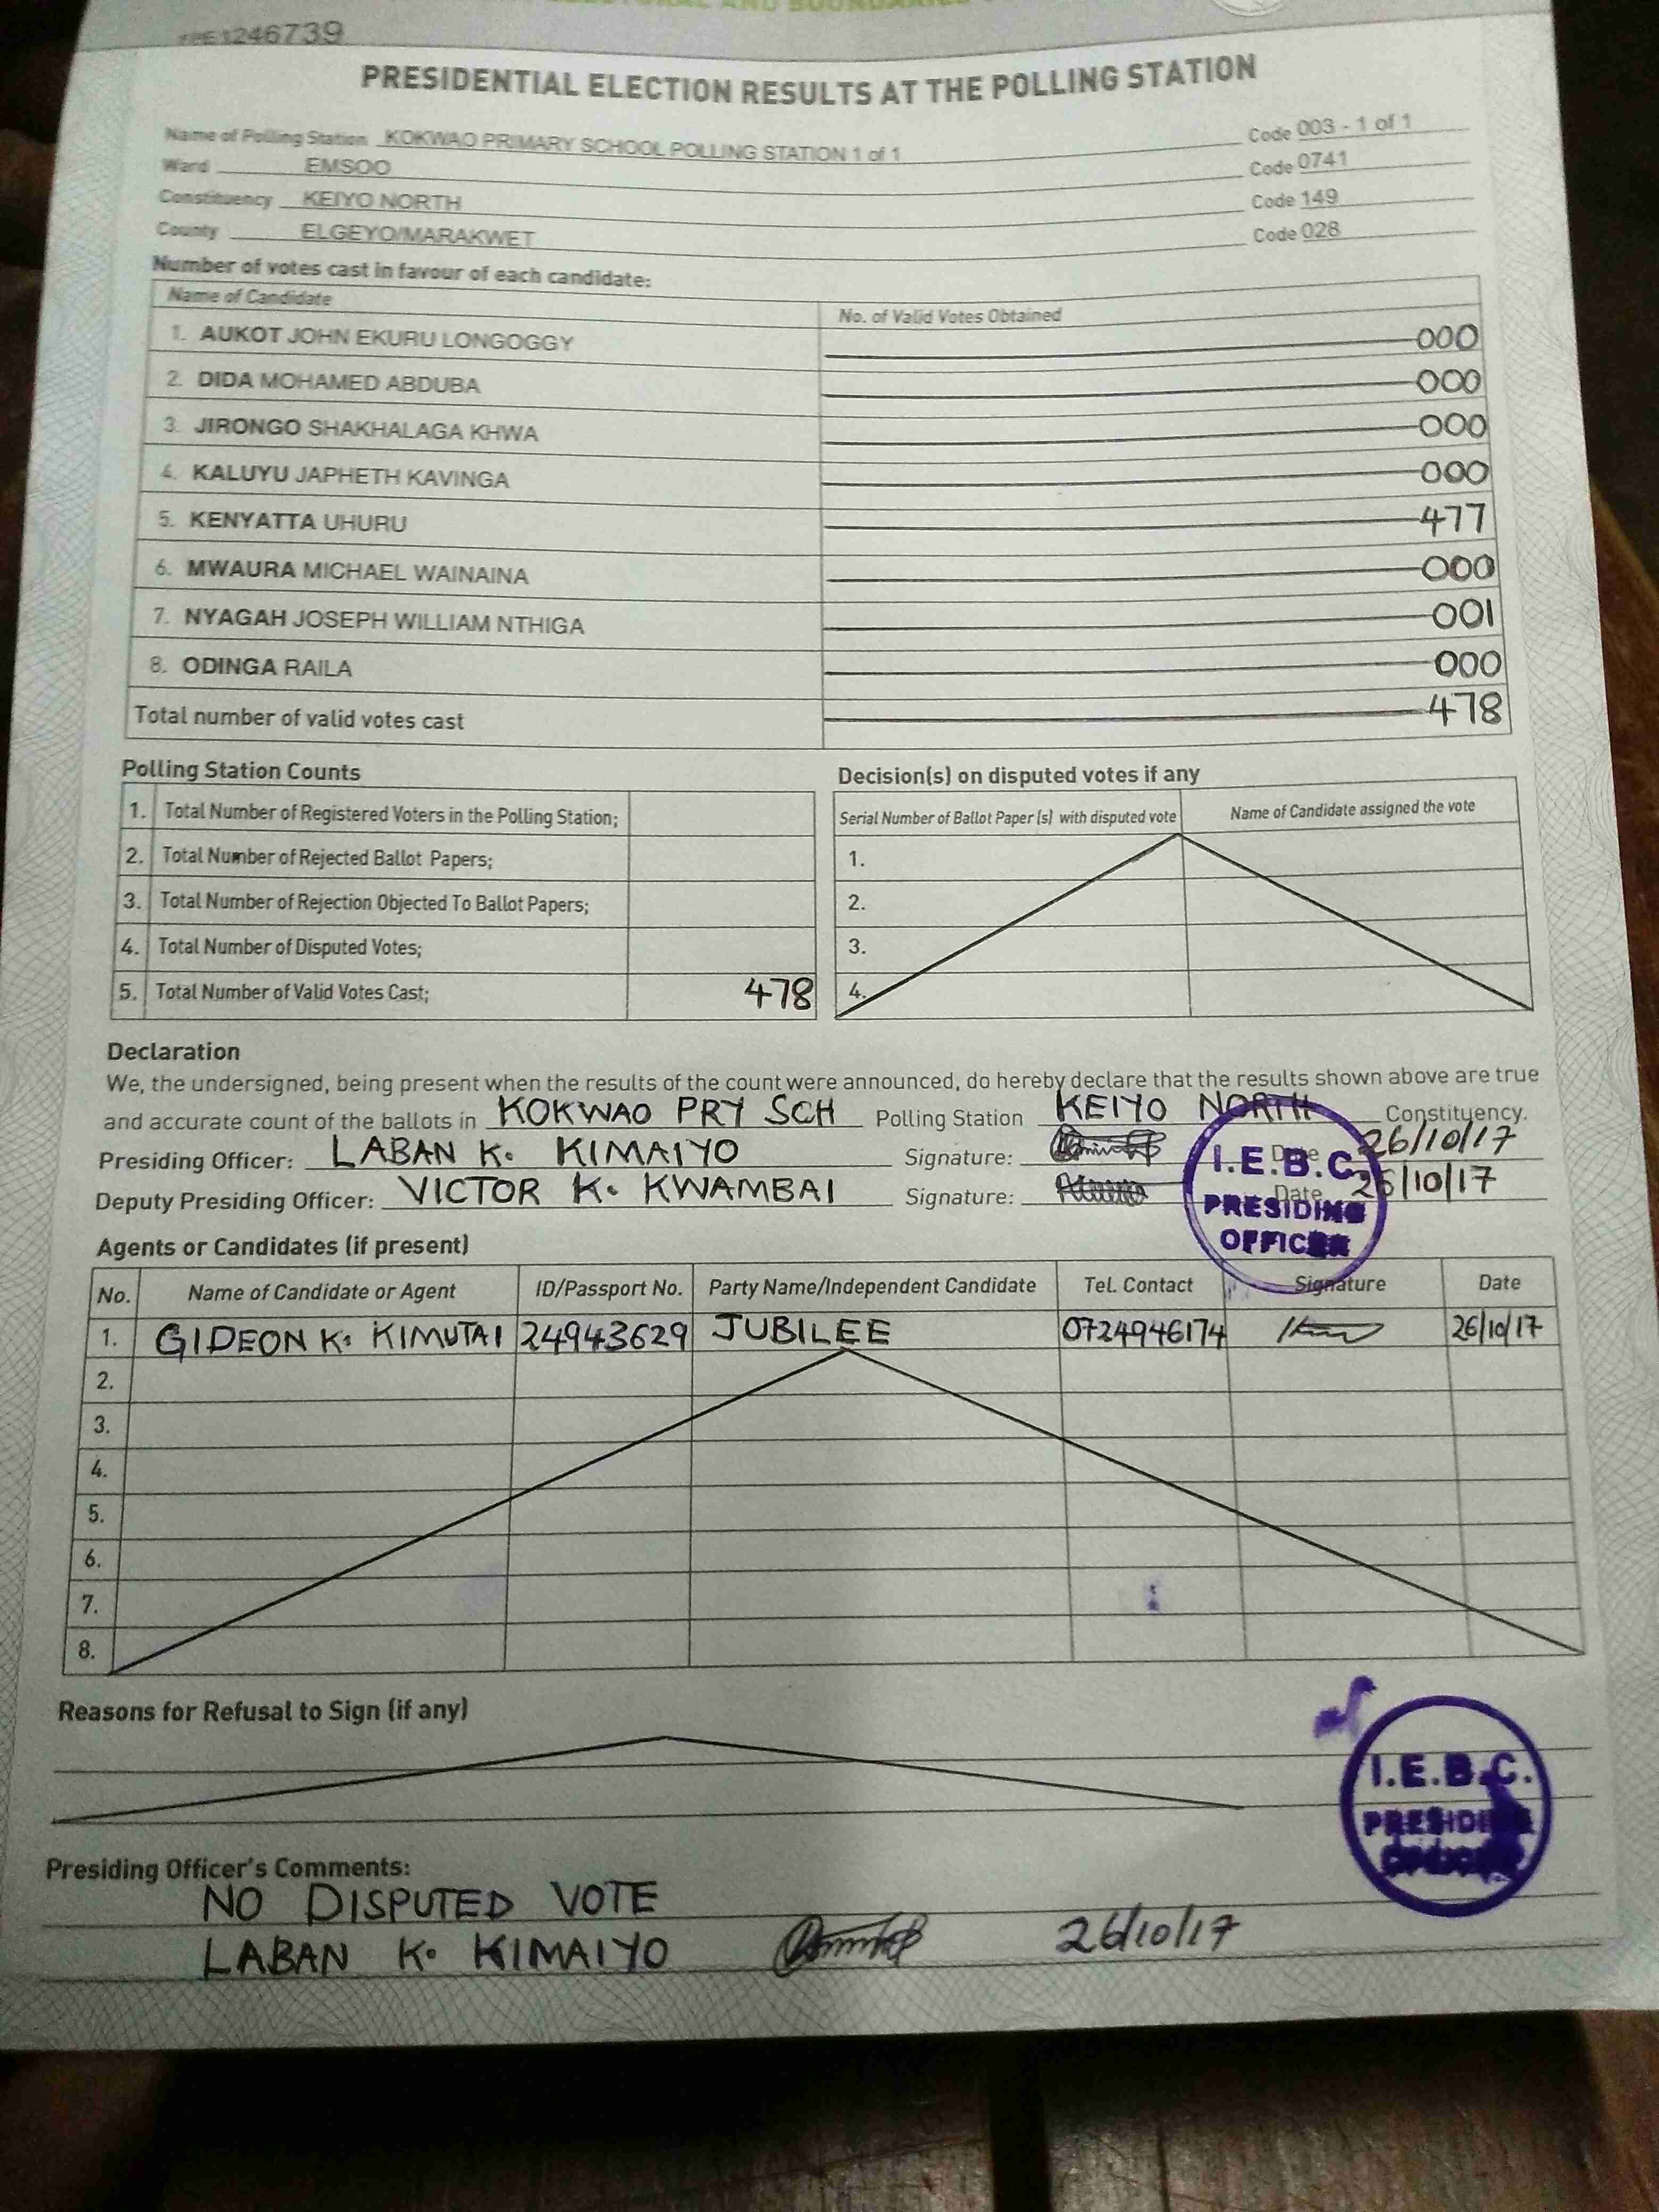 1246739
PRESIDENTIAL ELECTION RESULTS AT THE POLLING STATION
Name of Polling Station KOKWAO PRIMARY SCHOOL POLLING STATION 1 of 1 Code 003 - 1 of 1
Ward EMSOO Code 0741
Constituency KEIYO NORTH Code 149
County ELGEYO/MARAKWET Code 028
Number of votes cast in favour of each candidate:
Name of Candidate No. of Valid Votes Obtained
1. AUKOT JOHN EKURU LONGOGGY 000
2. DIDA MOHAMED ABDUBA 000
3. JIRONGO SHAKHALAGA KHWA 000
4. KALUYU JAPHETH KAVINGA 000
5. KENYATTA UHURU 477
6. MWAURA MICHAEL WAINAINA 000
7. NYAGAH JOSEPH WILLIAM NTHIGA 001
8. ODINGA RAILA 000
Total number of valid votes cast 478
Polling Station Counts
1. Total Number of Registered Voters in the Polling Station;
2. Total Number of Rejected Ballot Papers;
3. Total Number of Rejection Objected To Ballot Papers;
4. Total Number of Disputed Votes;
5. Total Number of Valid Votes Cast; 478
Decision(s) on disputed votes if any
Serial Number of Ballot Paper (s) with disputed vote Name of Candidate assigned the vote
1.
2.
3.
4.
Declaration
We, the undersigned, being present when the results of the count were announced, do hereby declare that the results shown above are true
and accurate count of the ballots in KOKWAO PRY SCH Polling Station KEIYO NORTH Constituency.
Presiding Officer: LABAN K. KIMAIYO Signature: Date 26/10/17
Deputy Presiding Officer: VICTOR K. KWAMBAI Signature: Date 26/10/17
I.E.B.C.
PRESIDING
OFFICER
Agents or Candidates (if present)
No. Name of Candidate or Agent ID/Passport No. Party Name/Independent Candidate Tel. Contact Signature Date
1. GIDEON K. KIMUTAI 24943629 JUBILEE 0724946174 26/10/17
2.
3.
4.
5.
6.
7.
8.
Reasons for Refusal to Sign (if any)
I.E.B.C.
PRESIDING
OFFICER
Presiding Officer's Comments:
NO DISPUTED VOTE
LABAN K. KIMAIYO 26/10/17